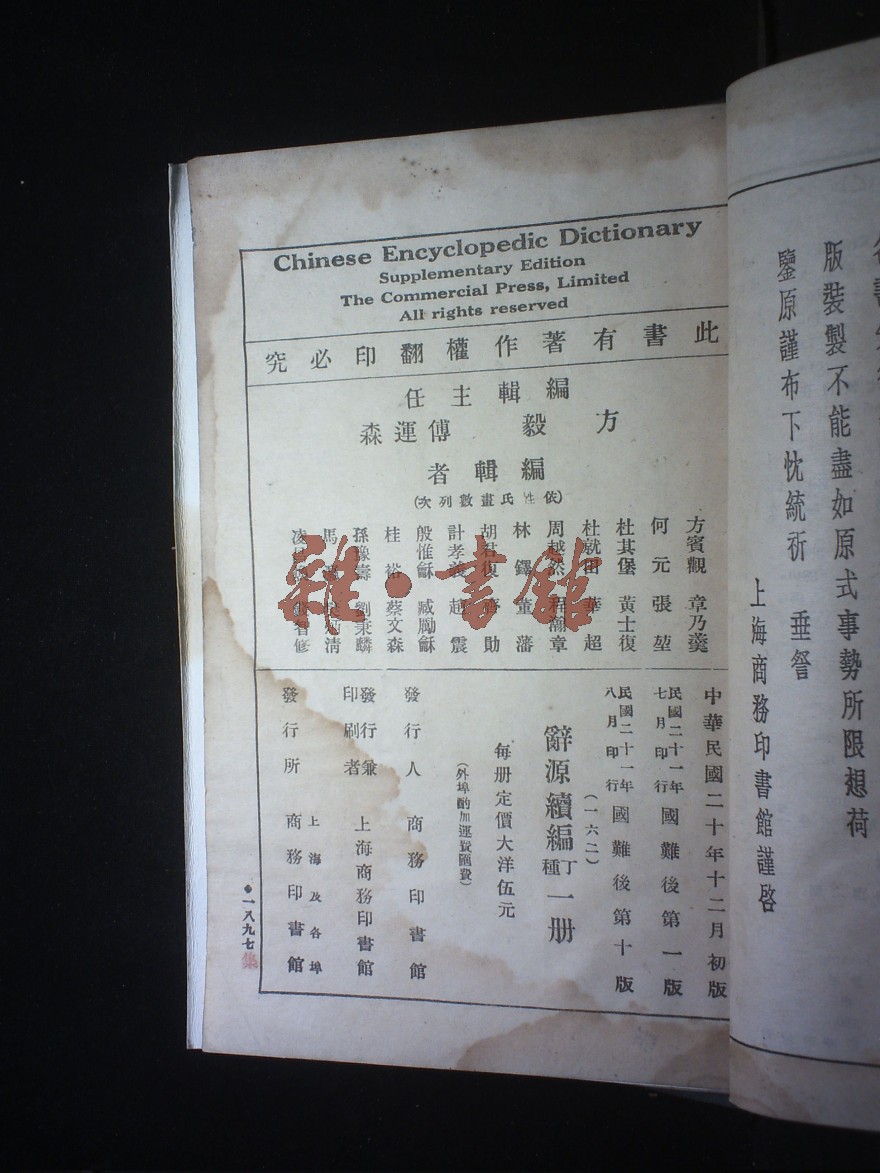 版裝製不能盡如原式事勢所限想荷
鑒原謹布下忱統祈 垂詧
上海商務印書館謹啓
Chinese Encyclopedic Dictionary
Supplementary Edition
The Commercial Press, Limited
All rights reserved
此書有著作權翻印必究
編輯主任
方毅 傅運森
編輯者
(依姓氏畫數列次)
方賓觀 章乃羹
何元 張堃
杜其堡 黃士復
杜就田 華超
周越然 程瀚章
林鐸 董藩
胡君復 勛
計孝 趙震
殷惟龢 臧勵龢
桂裕 蔡文森
孫豫壽 劉秉麟
馬 清
凌 智修
中華民國二十年十二月初版
民國二十一年七月印行 國難後第一版
民國二十一年八月印行 國難後第十版
(一六二)
辭源續編丁種 一册
每册定價大洋伍元
(外埠酌加運費匯費)
發行人 商務印書館
發行兼印刷者 上海商務印書館
發行所 上海及各埠 商務印書館
一八九七
集
雜·書館